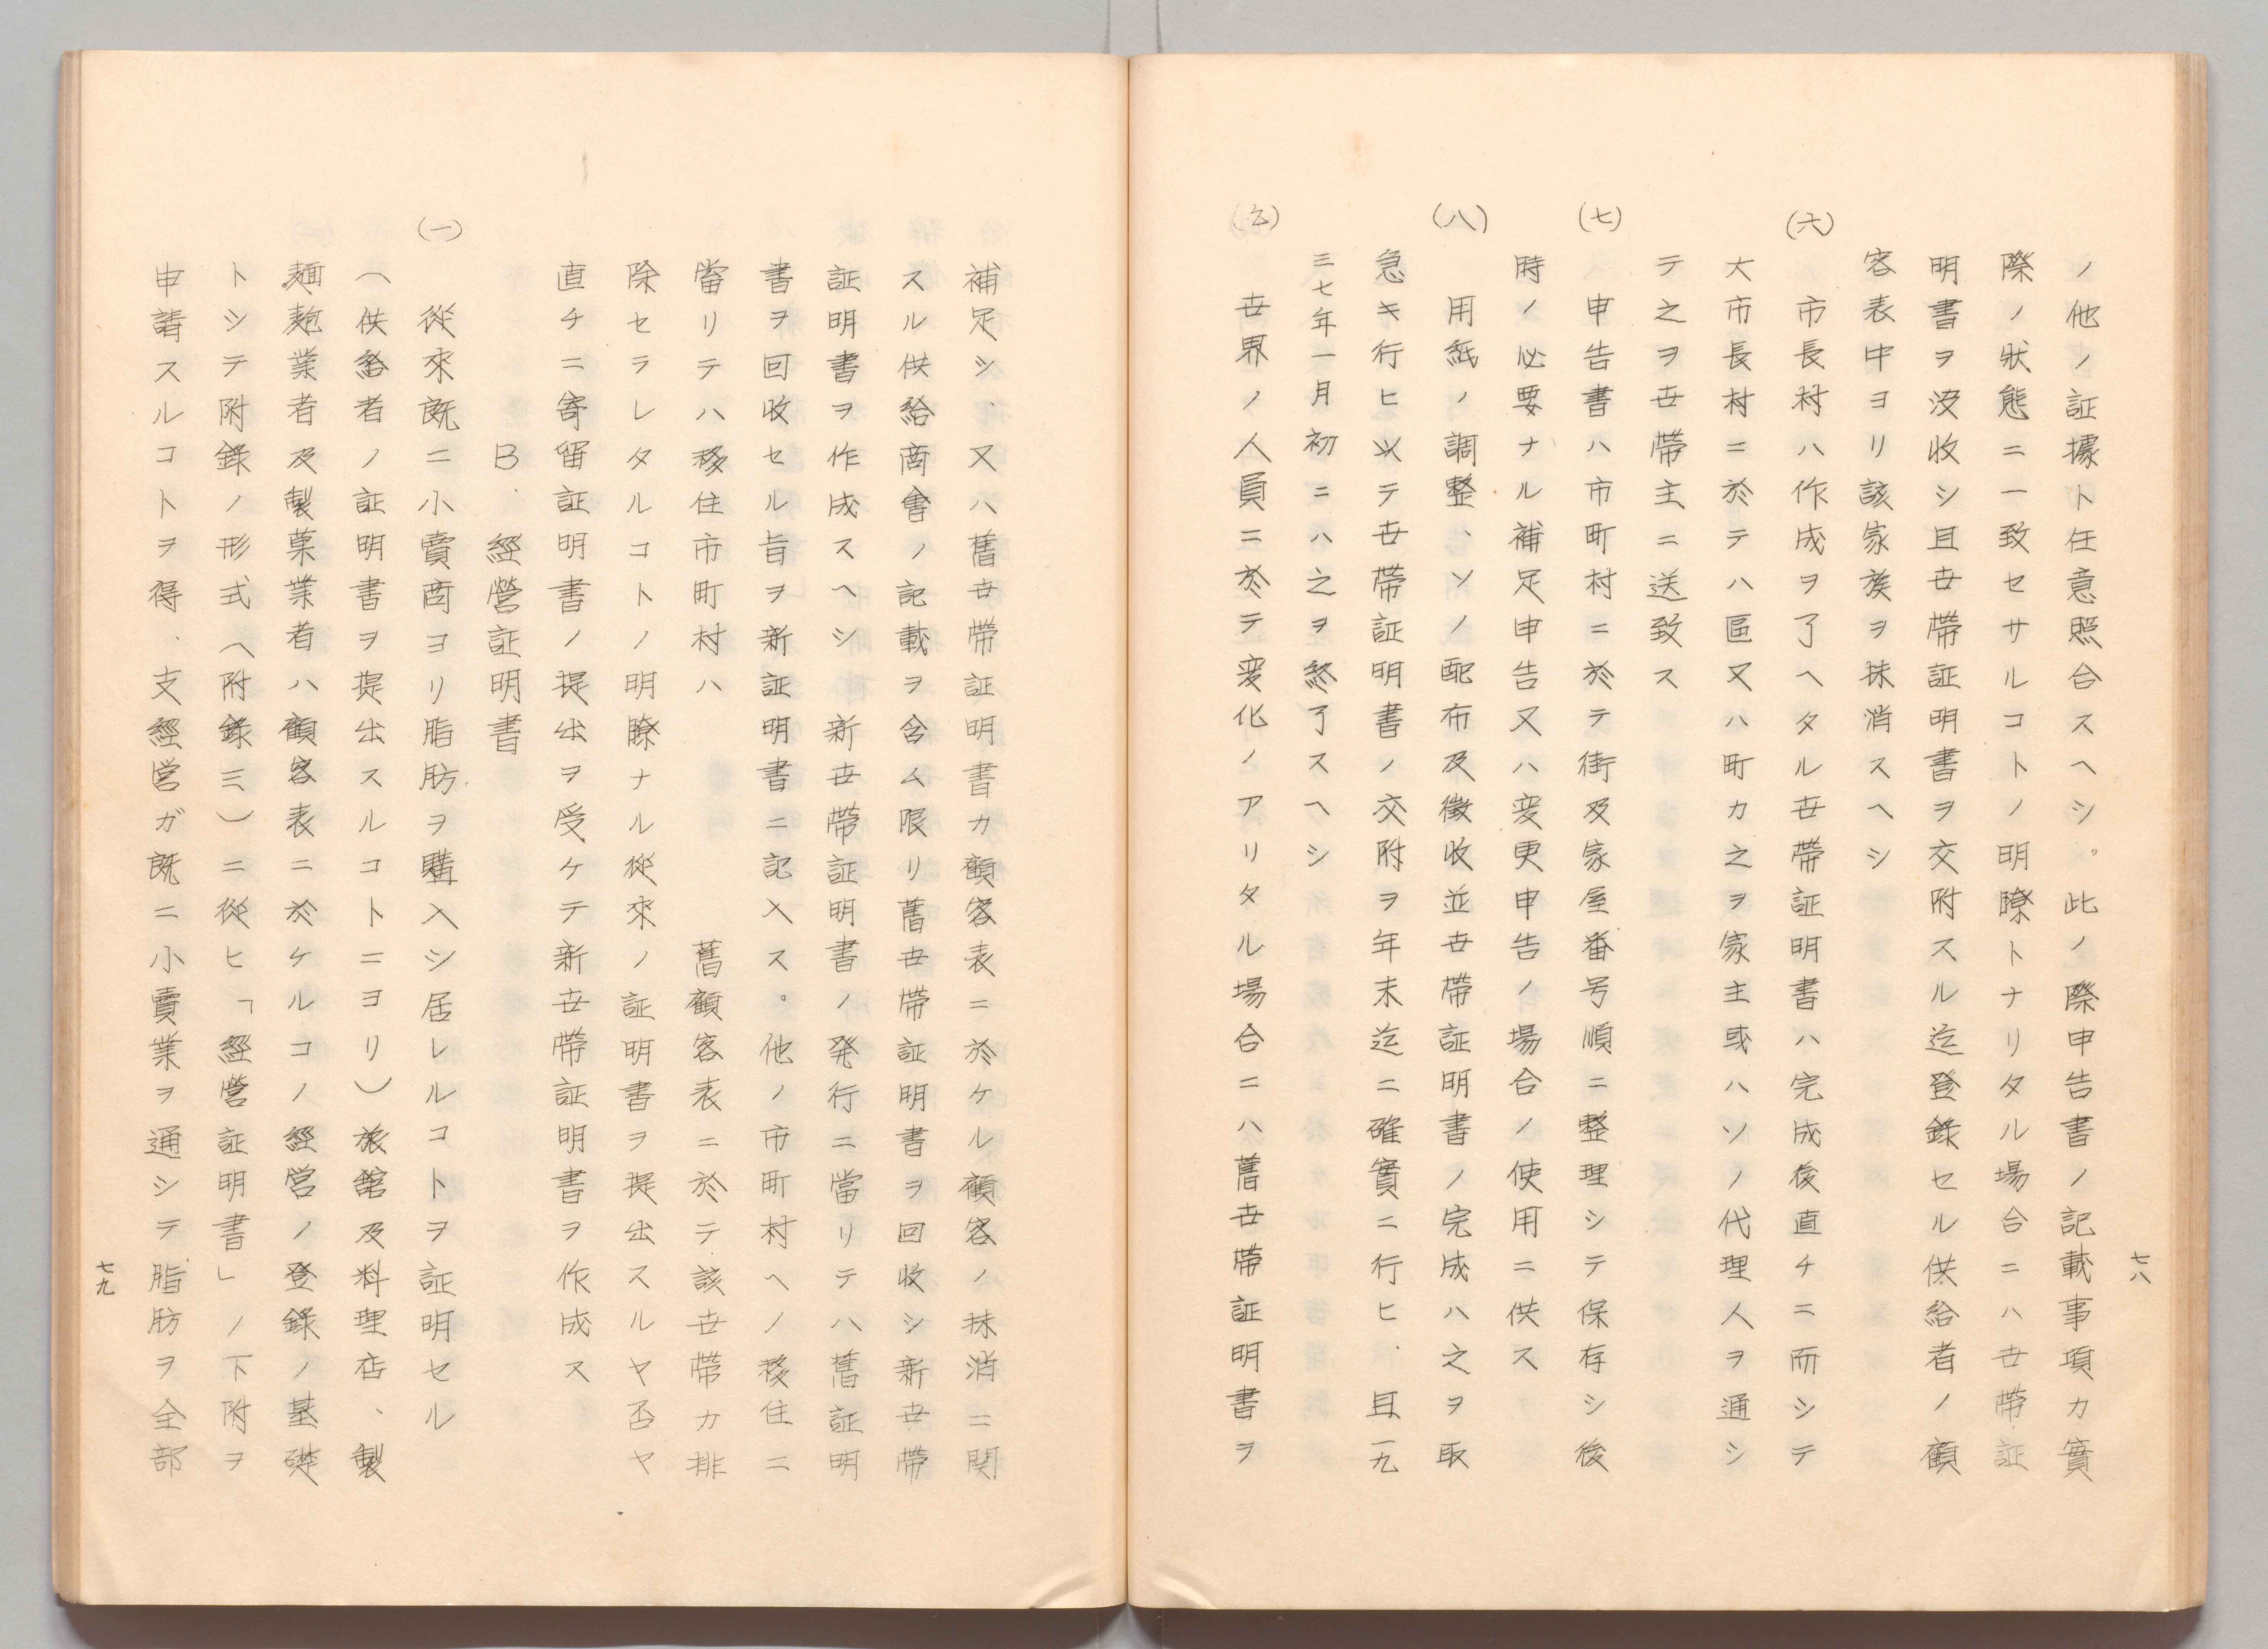 七八
ノ他ノ証據ト任意照合スヘシ。此ノ際申告書ノ記載事項カ實
際ノ狀態ニ一致セサルコトノ明瞭トナリタル場合ニハ世帶証
明書ヲ沒收シ且世帶証明書ヲ交附スル迄登錄セル供給者ノ顧
客表中ヨリ該家族ヲ抹消スヘシ
(六) 市長村ハ作成ヲ了ヘタル世帶証明書ハ完成後直チニ而シテ
大市長村ニ於テハ區又ハ町カ之ヲ家主或ハソノ代理人ヲ通シ
テ之ヲ世帶主ニ送致ス
(七) 申告書ハ市町村ニ於テ街及家屋番号順ニ整理シテ保存シ後
時ノ必要ナル補足申告又ハ変更申告ノ場合ノ使用ニ供ス
(八) 用紙ノ調整、ソノ配布及徵收並世帶証明書ノ完成ハ之ヲ取
急キ行ヒ以テ世帶証明書ノ交附ヲ年末迄ニ確實ニ行ヒ、且一九
三七年一月初ニハ之ヲ終了スヘシ
世界ノ人員ニ於テ変化ノアリタル場合ニハ舊世帶証明書ヲ
補足シ、又ハ舊世帶証明書カ顧客表ニ於ケル顧客ノ抹消ニ関
スル供給商會ノ記載ヲ含ム限リ舊世帶証明書ヲ回收シ新世帶
証明書ヲ作成スヘシ 新世帶証明書ノ発行ニ當リテハ舊証明
書ヲ回收セル旨ヲ新証明書ニ記入ス。他ノ市町村ヘノ移住ニ
當リテハ移住市町村ハ 舊顧客表ニ於テ該世帶カ排
除セラレタルコトノ明瞭ナル從來ノ証明書ヲ提出スルヤ否ヤ
直チニ寄留証明書ノ提出ヲ受ケテ新世帶証明書ヲ作成ス
B、經營証明書
(一) 從來既ニ小賣商ヨリ脂肪ヲ購入シ居レルコトヲ証明セル
(供給者ノ証明書ヲ提出スルコトニヨリ)旅舘及料理店、製
麺麭業者及製菓業者ハ顧客表ニ於ケルコノ經営ノ登錄ノ基礎
トシテ附錄ノ形式(附錄三)ニ從ヒ「經營証明書」ノ下附ヲ
申請スルコトヲ得、支經営ガ既ニ小賣業ヲ通シテ脂肪ヲ全部
七九